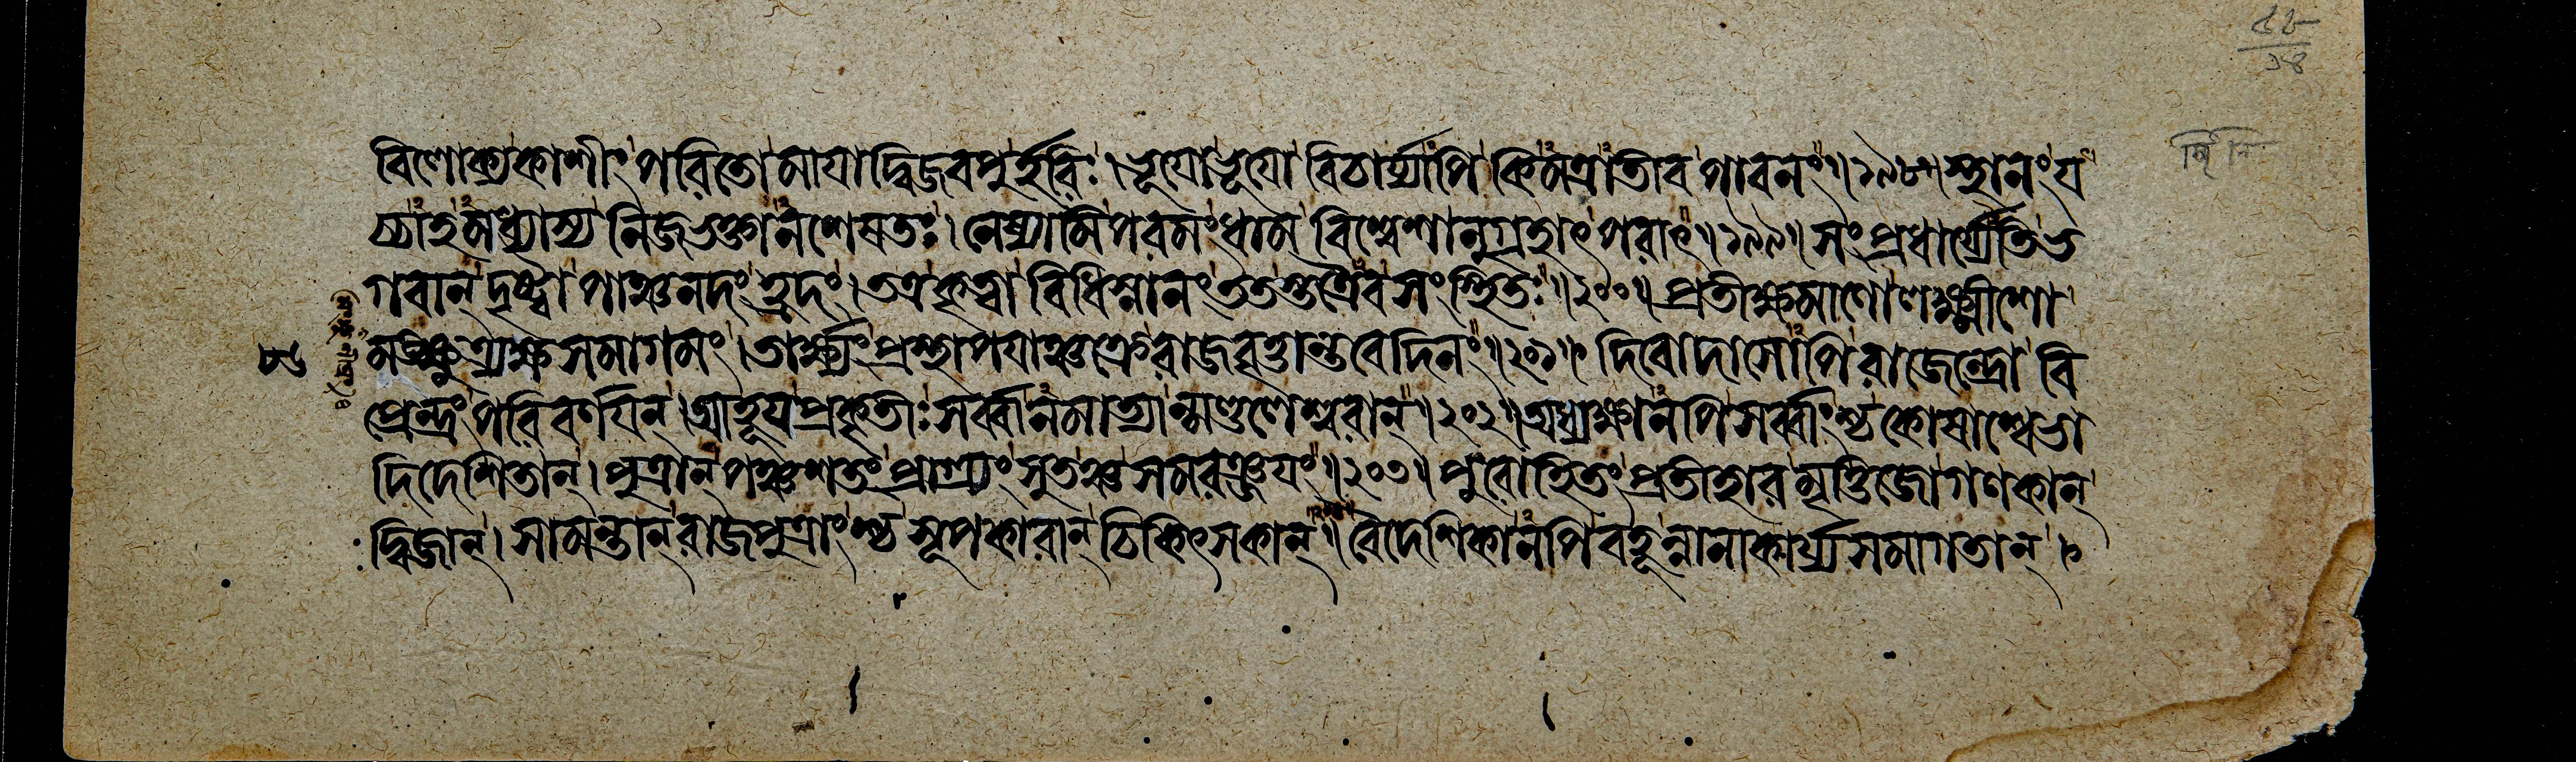 বিলোক্যকাশীং পরিতো মাযাদ্বিজবপুর্হরিঃ।ভূযোভূযো বিচার্য্যাপি কিমত্রাতীব পাবনং॥১৯৮॥স্থানংয
চ্চাহমধ্যাস্য নিজভক্তানশেষতঃ।নেষ্যামি পরমংধাম বিশ্বেশানুগ্রহাৎ পরাৎ॥১৯৯॥সংপ্রধার্য্যেতিভ
গবান্ দৃষ্ট্বা পাঞ্চনদং হ্রদং।তত্রকৃত্বা বিধিস্নানং ততস্তত্রৈব সংস্থিতঃ॥২০০॥প্রতীক্ষমাণোলক্ষ্মীশো
মঙ্ক্ষুত্র্যক্ষ সমাগমং।তার্ক্ষ্যং প্রস্থাপযাঞ্চক্রে রাজবৃত্তান্তবেদিনং॥২০১॥ দিবোদাসোপি রাজেন্দ্রো বি
প্রেন্দ্রং পরিবর্ণযন্।আহূয প্রকৃতীঃ সর্ব্বানমাত্যান্মণ্ডলেশ্বরান্॥২০২॥অধ্যক্ষানপি সর্ব্বাংশ্চ কোষাশ্বেভা
দিদেশিতান্।পুত্রান্ পঞ্চশতং প্রাগ্র্যং সুতঞ্চ সমরঞ্জযং॥২০৩॥পুরোহিতং প্রতীহার মৃত্বিজো গণকান্
দ্বিজান্।সামন্তান্ রাজপুত্রাংশ্চ সূপকারান্ চিকিৎসকান্॥বৈদেশিকানপি বহূন্নানাকার্য্য সমাগতান্।
৮৬